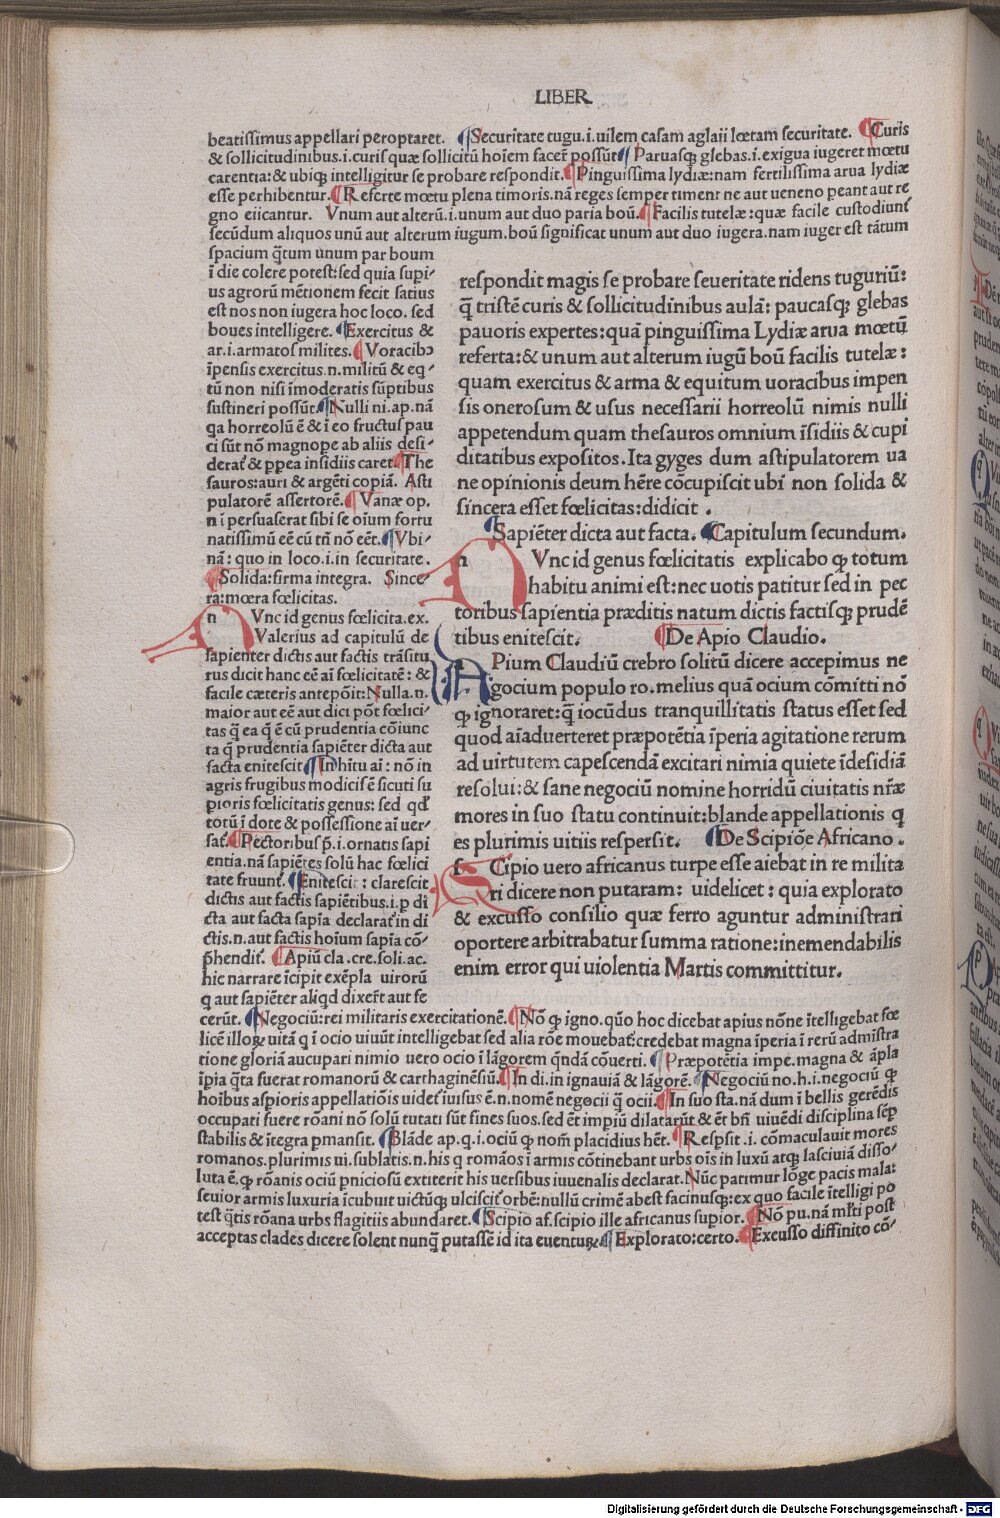 LIBER
beatissimus appellari peroptaret. ¶Securitate tugu.i.uilem casam aglaii lœtam securitate. ¶Curis
& sollicitudinibus.i.curis quæ sollicitū hoiem facer̄ possūt¶Paruasqȝ glebas.i.exigua iugeret mœtu
carentia:& ubiqȝ intelligitur se probare respondit.¶Pinguissima lydiæ:nam fertilissima arua lydiæ
esse perhibentur.¶Referte mœtu plena timoris.nā reges semper timent ne aut ueneno peant aut re
gno eiicantur. Vnum aut alterū.i.unum aut duo paria boū.¶Facilis tutelæ:quæ facile custodiunt
secūdum aliquos unū aut alterum iugum.boū significat unum aut duo iugera.nam iuger est tātum
spacium q̄tum unum par boum
ī die colere potest:sed quia supi/
us agrorū mētionem fecit satius
est nos non iugera hoc loco. sed
boues intelligere.¶Exercitus &
ar.i.armatos milites.¶Voracibꝰ
īpensis exercitus.n.militū & eq/
tū non nisi īmoderatis sūptibus
sustineri possūt.¶Nulli ni.ap.nā
qa horreolū ē & ī eo fructus pau
ci sūt nō magnope ab aliis desi/
derat̄ & ppea insidiis caret.¶The
sauros:auri & argēti copiā. Asti
pulatorē assertorē.¶Vanæ op.
n ī persuaserat sibi se oīum fortu
natissimū eē cū tn̄ nō eēt.¶Vbi/
nā: quo in loco.i.in securitate.
¶Solida:firma integra. Since/
ra:mœra fœlicitas.
n Vnc id genus fœlicita.ex.
Valerius ad capitulū de
sapienter dictis aut factis trāsitu
rus dicit hanc eē aī fœlicitatē: &
facile cæteris antepōit:Nulla.n.
maior aut eē aut dici pōt fœlici/
tas q̄ ea q̄ ē cū prudentia cōiunc
ta q̄ prudentia sapiēter dicta aut
facta enitescit¶In hītu aī: nō in
agris frugibus modicisē sicuti su
pioris fœlicitatis genus: sed qđ
totū ī dote & possessione aī uer/
sat̄.¶Pectoribus p̄.i.ornatis sapi
entia.nā sapiētes solū hac fœlici
tate fruunt̄.¶Enitescit: clarescit
dictis aut factis sapiētibus.i.p di
cta aut facta sapīa declarat̄ in di
ctis.n.aut factis hoīum sapīa cō/
p̄hendit̄. ¶Apiū cla.cre.soli.ac.
hic narrare īcipit exēpla uirorū
q aut sapiēter aliqd dixer̄t aut fe
respondit magis se probare seueritate ridens tuguriū:
q̄ tristē curis & sollicitudīnibus aulā: paucasqȝ glebas
pauoris expertes:quā pinguissima Lydiæ arua mœtū
referta:& unum aut alterum iugū boū facilis tutelæ:
quam exercitus & arma & equitum uoracibus impen
sis onerosum & usus necessarii horreolū nimis nulli
appetendum quam thesauros omnium īsidiis & cupi
ditatibus expositos.Ita gyges dum astipulatorem ua
ne opinionis deum hēre cōcupiscit ubi non solida &
sincera esset fœlicitas:didicit .
¶Sapiēter dicta aut facta.¶Capitulum secundum.
n Vnc id genus fœlicitatis explicabo qȝ totum
habitu animi est:nec uotis patitur sed in pec
toribus sapientia præditis natum dictis factisqȝ prudē
tibus enitescit. ¶De Apio Claudio.
APium Claudiū crebro solitū dicere accepimus ne
gocium populo ro.melius quā ocium cōmitti nō
qȝ ignoraret:q̄ iocūdus tranquillitatis status esset sed
quod aīaduerteret præpotētia īperia agitatione rerum
ad uirtutem capescendā excitari nimia quiete īdesidiā
resolui:& sane negociū nomine horridū ciuitatis nr̄æ
mores in suo statu continuit:blande appellationis q
es plurimis uitiis respersit. ¶De Scipiōe Africano .
SCipio uero africanus turpe esse aiebat in re milita
ri dicere non putaram: uidelicet : quia explorato
& excusso consilio quæ ferro aguntur administrari
oportere arbitrabatur summa ratione:inemendabilis
enim error qui uiolentia Martis committitur.
cerūt.¶Negociū:rei militaris exercitationē.¶Nō qȝ igno.qūo hoc dicebat apius nōne ītelligebat fœ
licē illoꝝ uitā q ī ocio uiuūt intelligebat sed alia rōe mouebat̄:credebat magna īperia ī rerū admīstra
tione gloriā aucupari nimio uero ocio ī lāgorem q̄ndā cōuerti.¶Præpotētia impe.magna & āpla
īpia q̄ta fuerat romanorū & carthaginēsiū.¶In di.in ignauiā & lāgorē.¶Negociū no.h.i.negociū qȝ
hoibus aspioris appellatiōis uidet̄ iuisus ē.n.nomē negocii q̄ ocii.¶In suo sta.nā dum ī bellis gerēdis
occupati fuere rōani nō solū tutati sūt fines suos.sed ēt impiū dilatarūt & ēt bn̄ uiuēdi disciplina sēp
stabilis & ītegra pmansit.¶Blāde ap.q.i.ociū qȝ nom̄ placidius hēt.¶Respsit .i. cōmaculauit mores
romanos.plurimis ui.sublatis.n.his q romāos ī armis cōtinebant urbs oīs in luxū atqȝ lasciuiā disso/
luta ē.qȝ rōanis ociū pniciosū extiterit his uersibus iuuenalis declarat.Nūc patimur lōge pacis mala:
seuior armis luxuria īcubuit uictūqȝ ulciscit̄ orbē:nullū crimē abest facinusqȝ:ex quo facile ītelligi po
test q̄tis rōana urbs flagitiis abundaret.¶Scipio af.scipio ille africanus supior.¶Nō pu.nā mr̄ti post
acceptas clades dicere solent nunq̄ putassē id ita euentuꝝ¶Explorato:certo.¶Excusso diffinito cō/
Digitalisierung gefördert durch die Deutsche Forschungsgemeinschaft - DFG